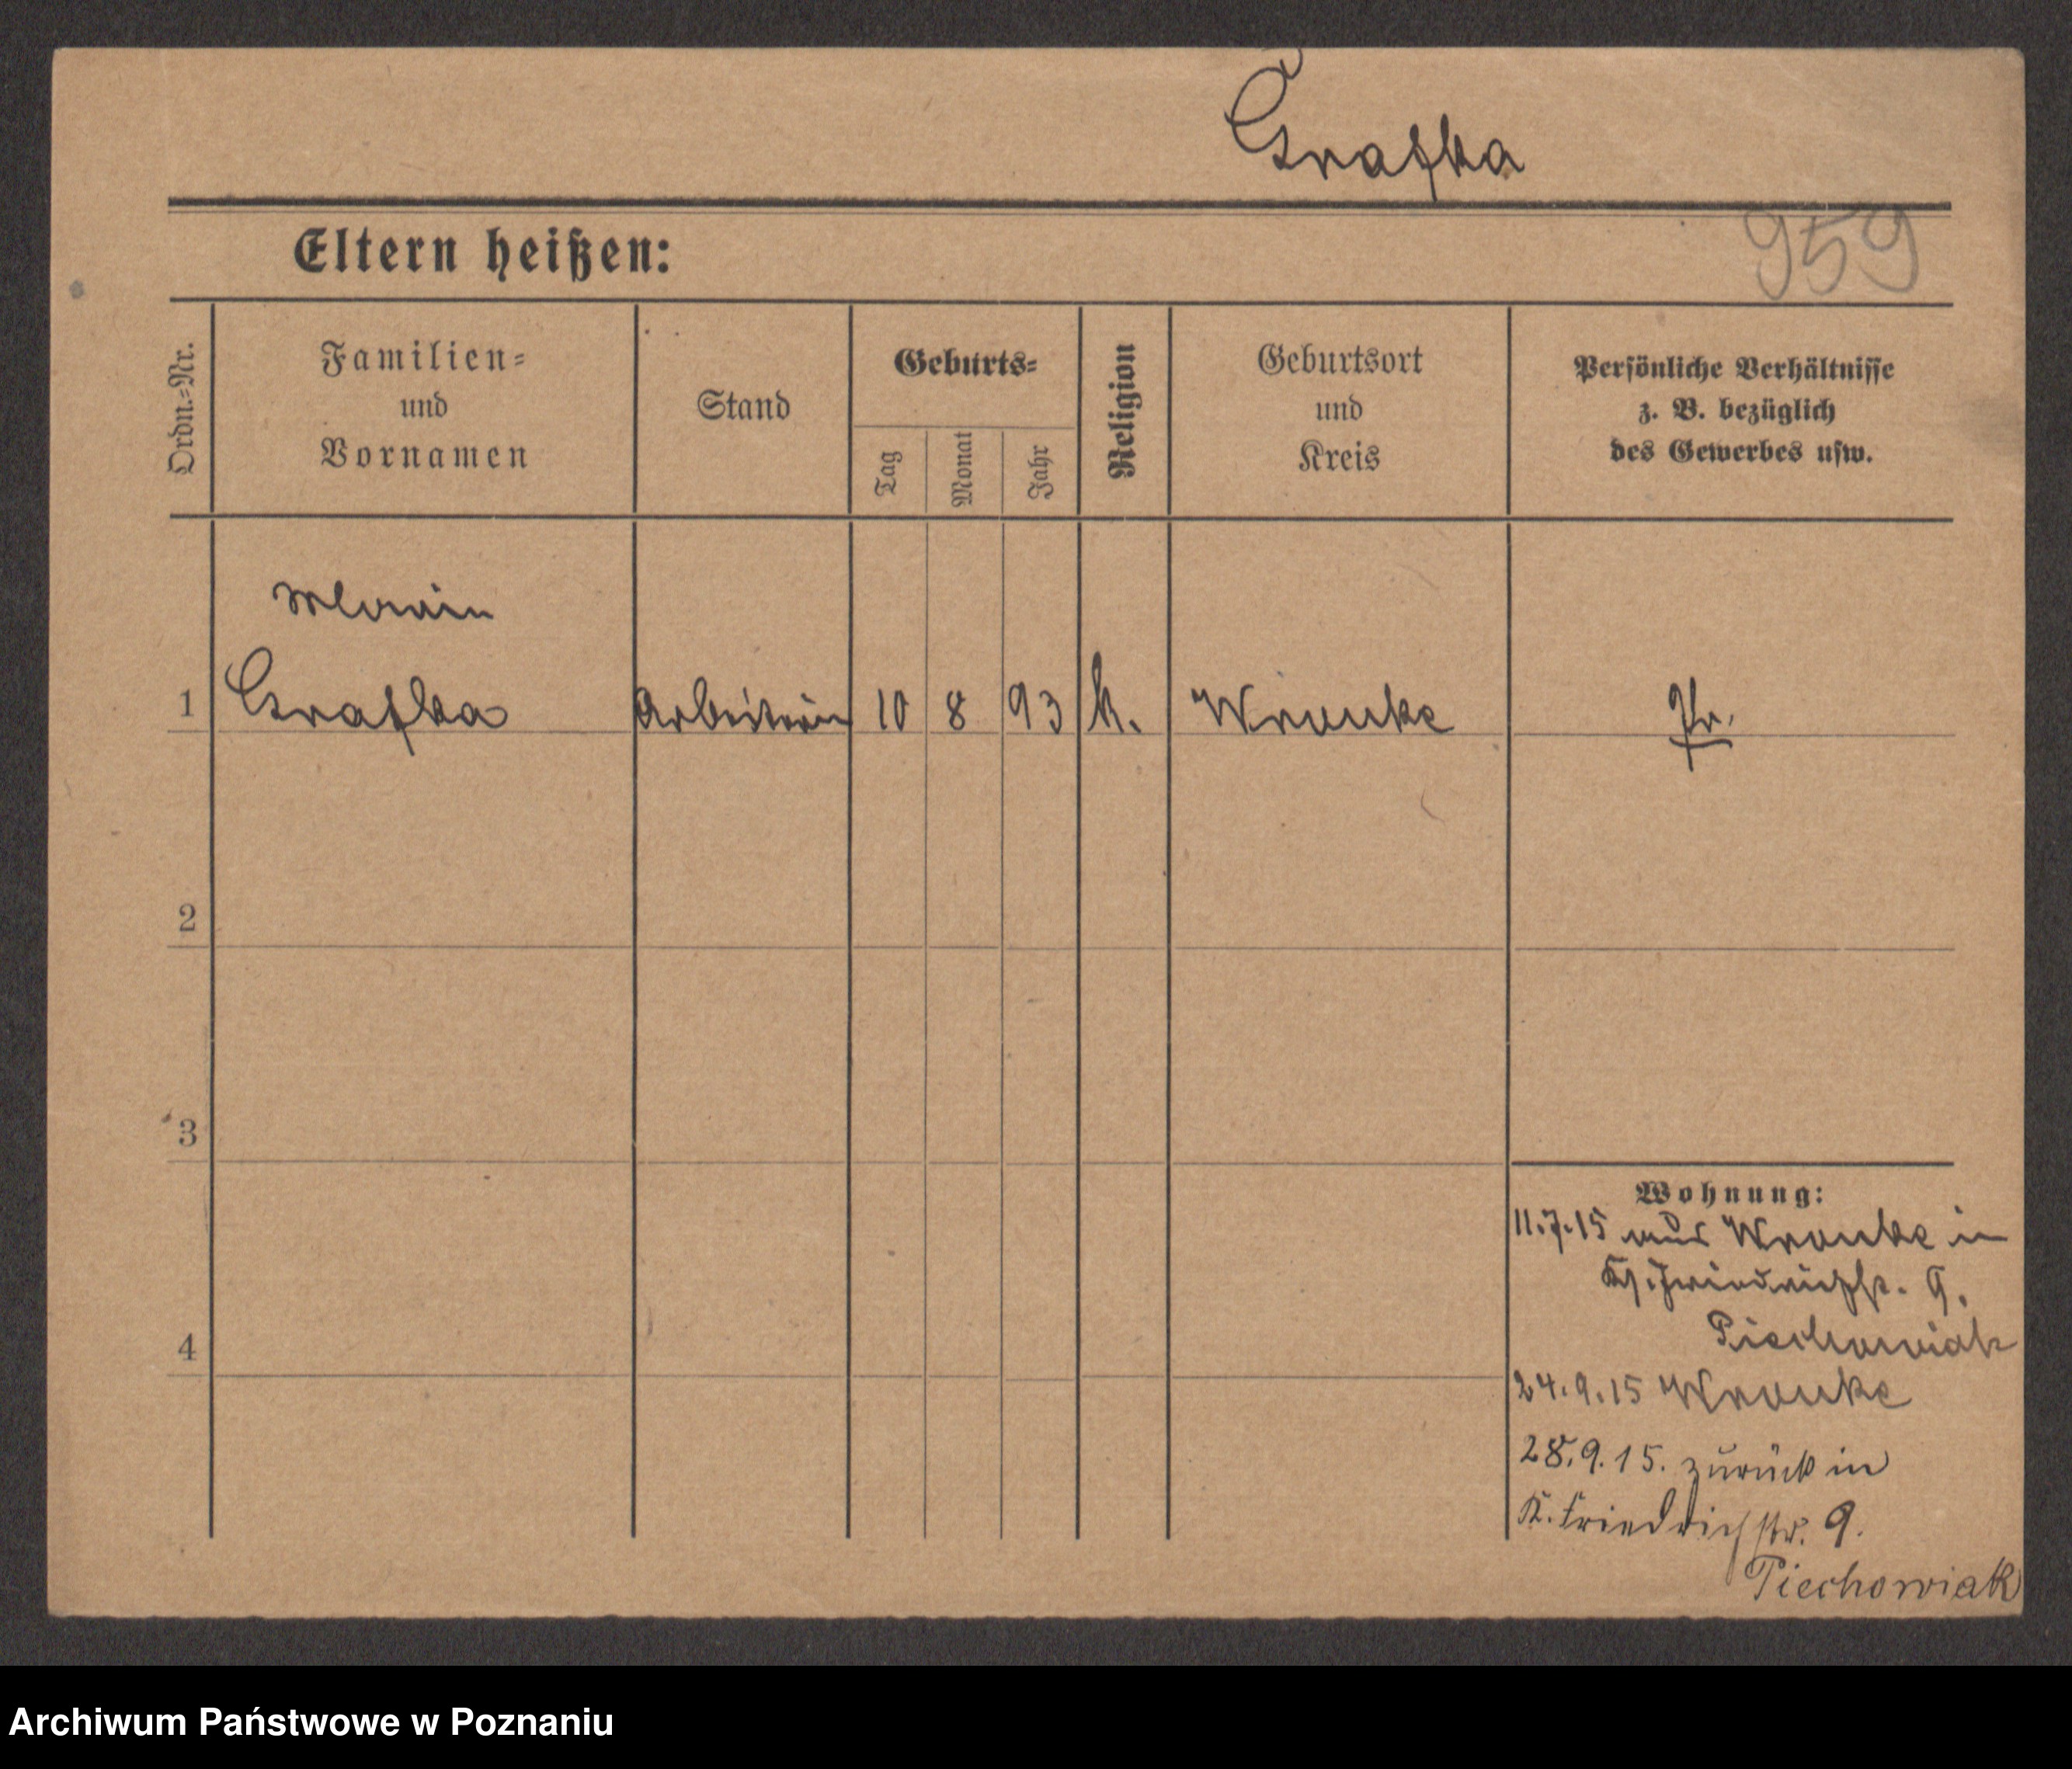 Grafka
Eltern heißen:
959
Ordn.=Nr.
Familien=
und
Vornamen
Stand
Geburts=
Tag
Monat
Jahr
Religion
Geburtsort
und
Kreis
Persönliche Verhältnisse
z. B. bezüglich
des Gewerbes usw.
1
Grafka
Arbeiterin
10
8
93
k.
Wronke
Pr.
2
3
4
Wohnung:
11.7.15 aus Wronke in
K. Friedrichstr. 9.
Piechowiak
24.9.15 Wronke
28.9.15. zurück in
K. Friedrichstr. 9.
Piechowiak
Archiwum Państwowe w Poznaniu